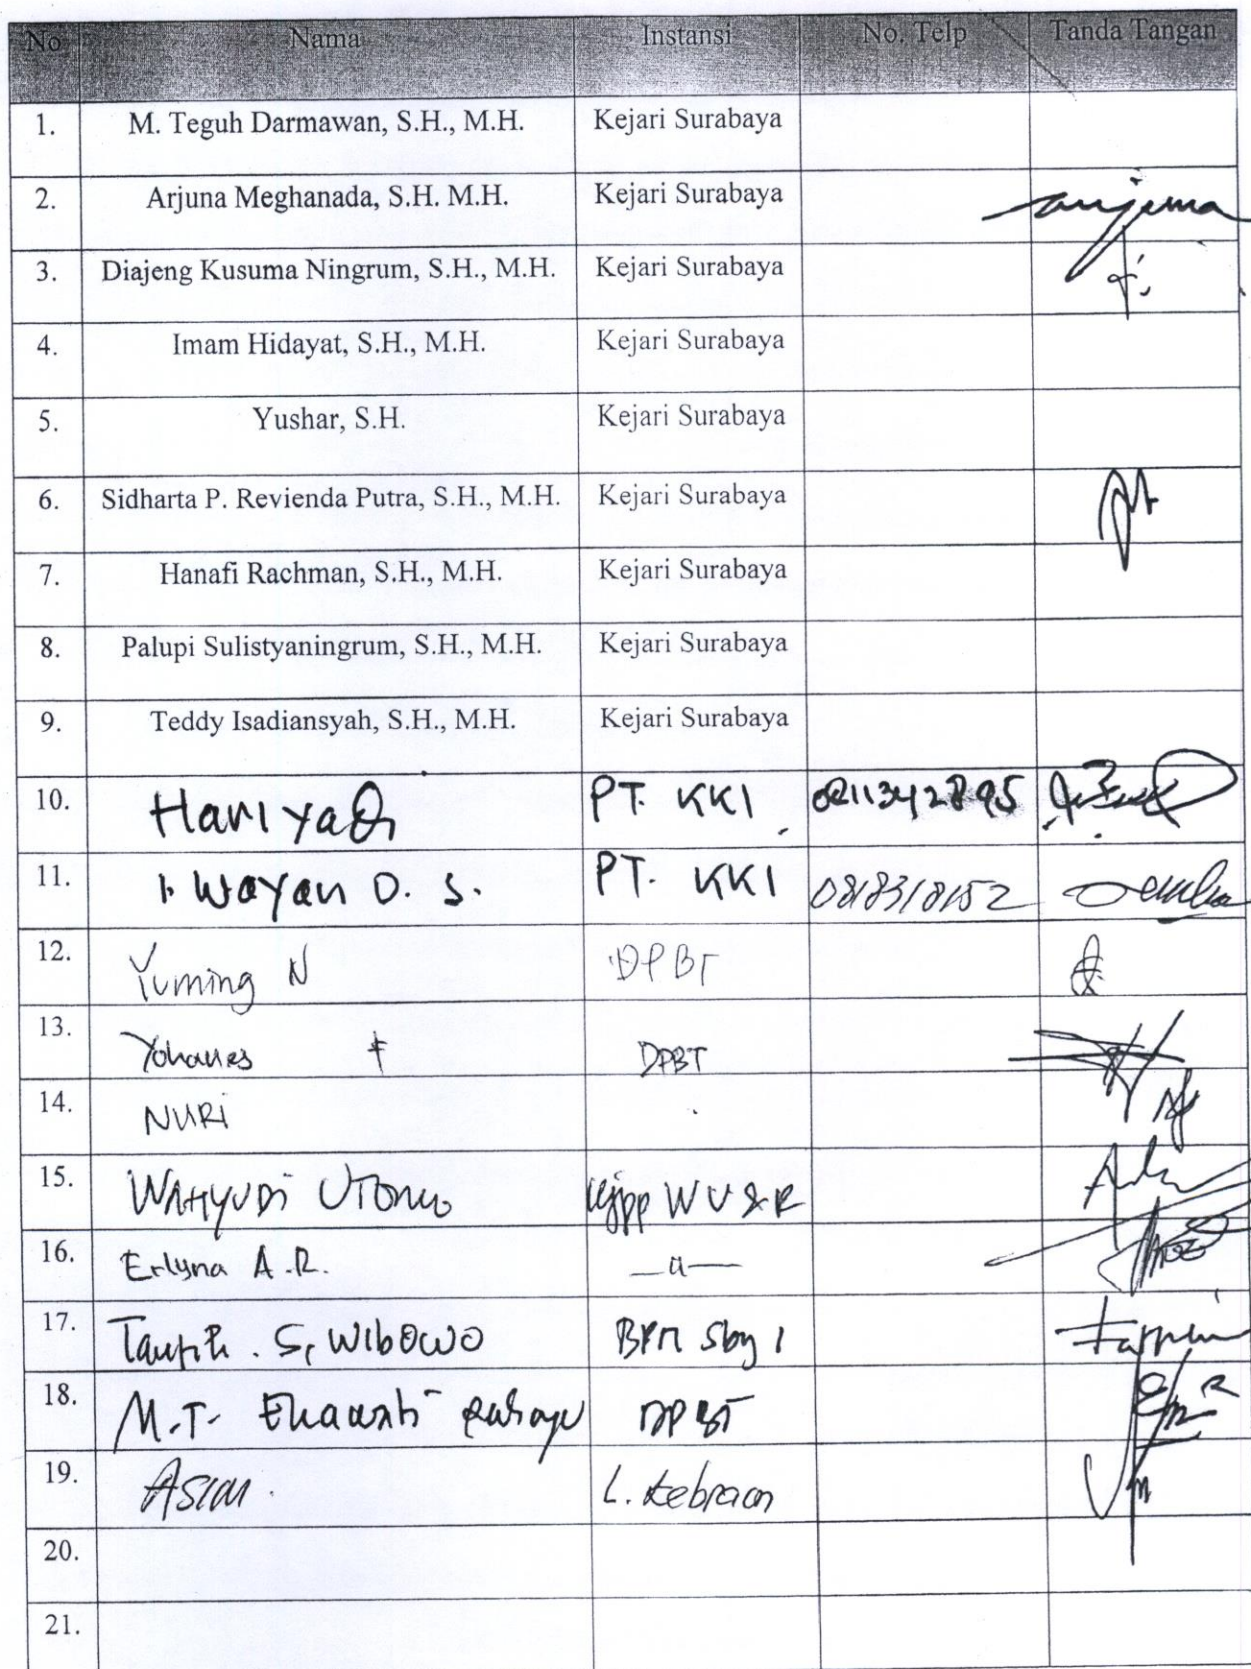 No Nama Instansi No. Telp Tanda Tangan
1. M. Teguh Darmawan, S.H., M.H. Kejari Surabaya
2. Arjuna Meghanada, S.H. M.H. Kejari Surabaya
3. Diajeng Kusuma Ningrum, S.H., M.H. Kejari Surabaya
4. Imam Hidayat, S.H., M.H. Kejari Surabaya
5. Yushar, S.H. Kejari Surabaya
6. Sidharta P. Revienda Putra, S.H., M.H. Kejari Surabaya
7. Hanafi Rachman, S.H., M.H. Kejari Surabaya
8. Palupi Sulistyaningrum, S.H., M.H. Kejari Surabaya
9. Teddy Isadiansyah, S.H., M.H. Kejari Surabaya
10. Hariyadi PT. KKI
11. I. Wayan D. S. PT. KKI
12. Yuming N DPBT
13. Yohanes F DPBT
14. NURi
15. WAHYUDi UTOMO KJPP
16. Erlyna A.R. —"—
17. Taufik. S, WIBOWO BPN Sby 1
18. M.T. Ekawati Rahayu DPBT
19. L. Kebraon
20.
21.